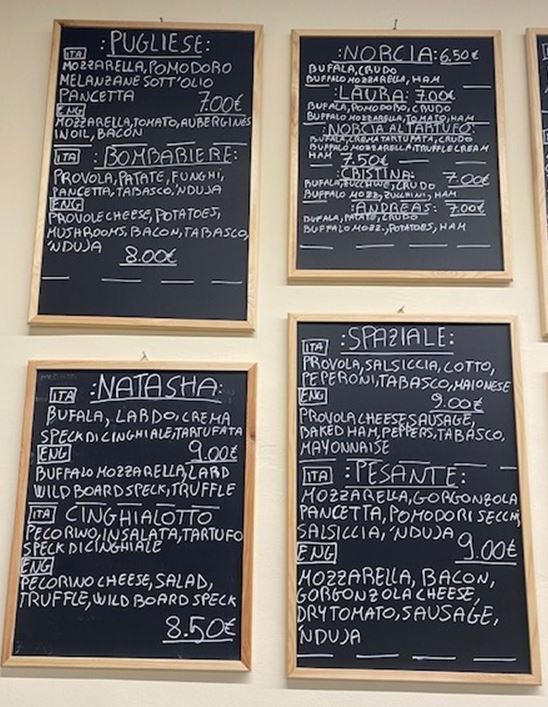 :PUGLIESE:
ITA
MOZZARELLA, POMODORO
MELANZANE SOTT'OLIO
PANCETTA 7.00€
ENG
MOZZARELLA, TOMATO, AUBERGINES
IN OIL, BACON
ITA :BOMBARIERE:
PROVOLA, PATATE, FUNGHI,
PANCETTA, TABASCO, 'NDUJA
ENG
PROVOLE CHEESE, POTATOES,
MUSHROOMS, BACON, TABASCO,
'NDUJA
8.00€
:NORCIA: 6.50€
BUFALA, CRUDO
BUFFALO MOZZARELLA, HAM
:LAURA: 7.00€
BUFALA, POMODORO, CRUDO
BUFFALO MOZZARELLA, TOMATO, HAM
:NORCIA AL TARTUFO:
BUFALA, CREMA TARTUFATA, CRUDO
BUFFALO MOZZARELLA, TRUFFLE CREAM
HAM 7.50€
:CRISTINA: 7.00€
BUFALA, ZUCCHINE, CRUDO
BUFFALO MOZZ, ZUCCHINI, HAM
:ANDREAS: 7.00€
BUFALA, PATATE, CRUDO
BUFFALO MOZZ., POTATOES, HAM
ITA :NATASHA:
BUFALA, LARDO, CREMA
SPECK DI CINGHIALE, TARTUFATA
ENG 9.00€
BUFFALO MOZZARELLA, LARD
WILD BOARD SPECK, TRUFFLE
ITA CINGHIALOTTO
PECORINO, INSALATA, TARTUFO
SPECK DI CINGHIALE
ENG
PECORINO CHEESE, SALAD,
TRUFFLE, WILD BOARD SPECK
8.50€
ITA :SPAZIALE:
PROVOLA, SALSICCIA, COTTO,
PEPERONI, TABASCO, MAIONESE
ENG 9.00€
PROVOLA CHEESE, SAUSAGE,
BAKED HAM, PEPPERS, TABASCO,
MAYONNAISE
ITA :PESANTE:
MOZZARELLA, GORGONZOLA
PANCETTA, POMODORI SECCHI,
SALSICCIA, 'NDUJA
ENG 9.00€
MOZZARELLA, BACON,
GORGONZOLA CHEESE,
DRY TOMATO, SAUSAGE,
'NDUJA